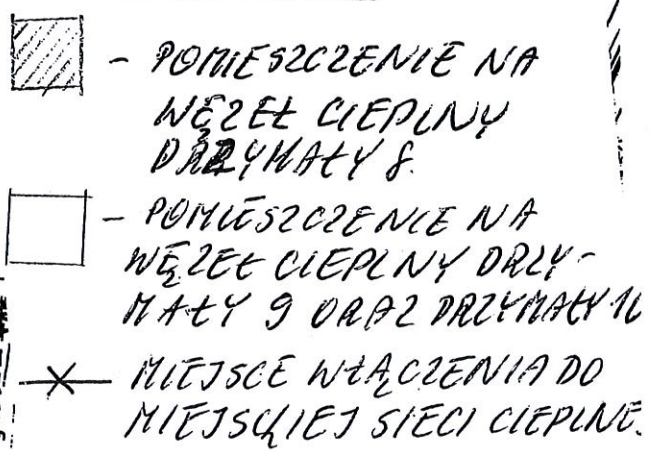 - POMIESZCZENIE NA
WĘZEŁ CIEPLNY
DRZYMAŁY 8.
- POMIESZCZENIE NA
WĘZEŁ CIEPLNY DRZY-
MAŁY 9 ORAZ DRZYMAŁY
MIEJSCE WŁĄCZENIA DO
MIEJSKIEJ SIECI CIEPLNE